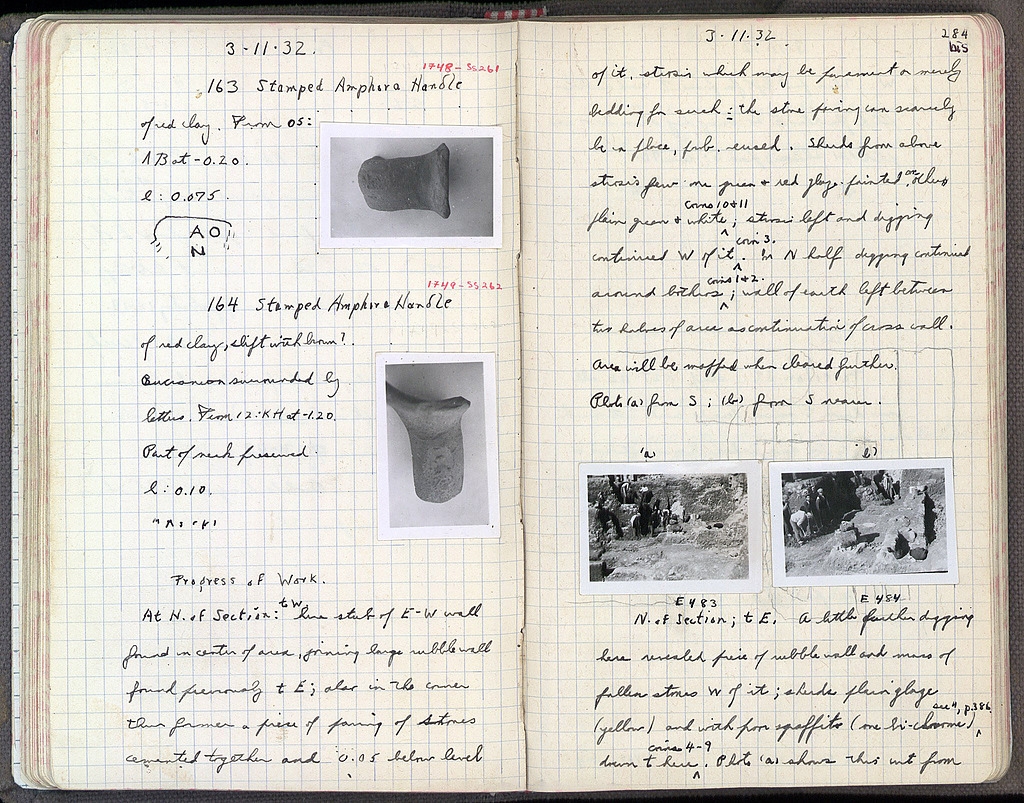 3·11·32.
1748-SS261
163 Stamped Amphora Handle
of red clay. From 05:
ΛB at -0.20.
l: 0.075.
A O
N
1749-SS262
164 Stamped Amphora Handle
of red clay, slip with brown?.
Bucranion surrounded by
letters. From 12:KH at -1.20.
Part of neck preserved.
l: 0.10.
Progress of Work.
At N. of Section: t W. here stub of E-W wall
found in center of area, joining large rubble wall
found previously t E; also in the corner
thus formed a piece of paving of stones
cemented together and 0.05 below level
3·11·32
284
bis
of it, strosis which may be pavement or merely
bedding for such: the stone paving can scarcely
be in place, prob. reused. Sherds from above
strosis few: one green & red glaze painted, on others
coins 10 & 11
plain green & white; strosis left and digging
coin 3.
continued W of it. In N half digging continued
coins 1 & 2.
around bothros; wall of earth left between
two halves of area as continuation of cross wall.
Area will be mapped when cleared further.
Photo (a) from S; (b) from S nearer.
(a) (b)
E 483 E 484
N. of Section; t E. A little further digging
here revealed piece of rubble wall and mass of
fallen stones W of it; sherds plain glaze
see 4, p.386
(yellow) and with poor sgraffito (one bi-chrome)
coins 4-9
down t here. Photo (a) shows this cut from